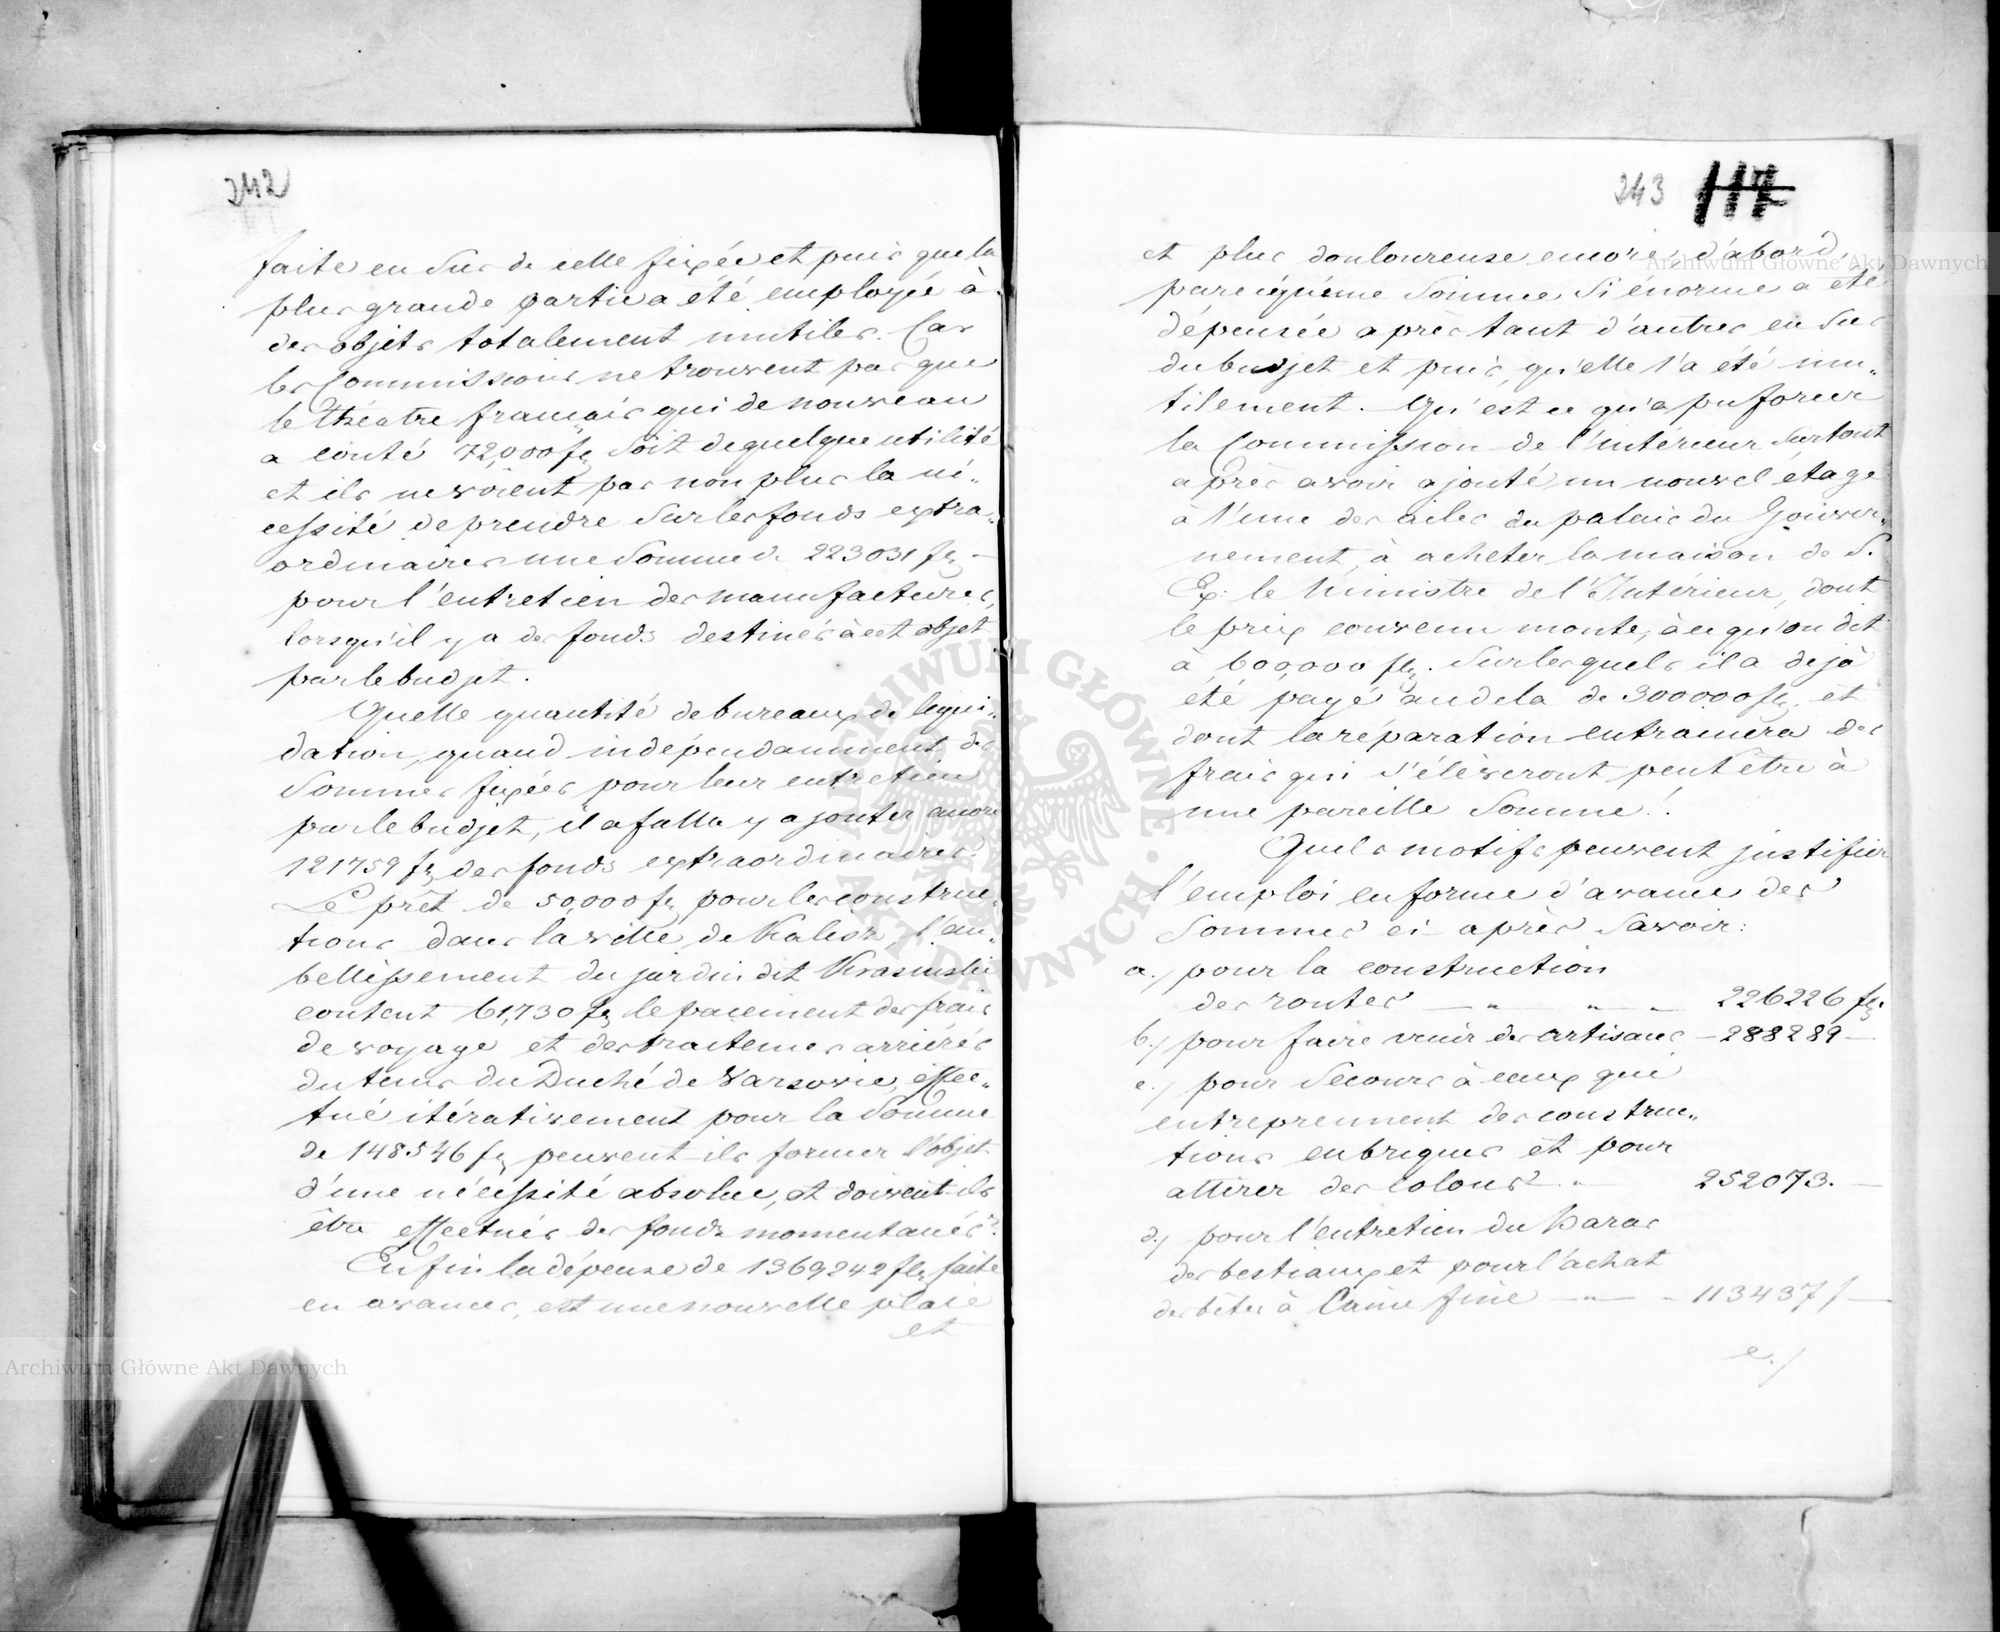 242
faite en sus de celle fixée et puis que la
plus grande partie a été employée à
des objets totalement inutiles. Car
les Commissions ne trouvent pas que
le théatre français qui de nouveau
a couté 72,000 fl. soit de quelque utilité
et ils ne voient pas non plus la né„
cessité de prendre sur les fonds extra„
ordinaires une somme de 223031 fl. –
pour l'entretien des manufactures,
lorsqu'il y a des fonds destinés à cet objet
par le budjet.
Quelle quantité de bureaux de liqui„
dation, quand indépendamment des
sommes fixées pour leur entretien
par le budjet, il a fallu y ajouter encore
121759 fl. des fonds extraordinaires.
Le prêt de 50,000 fl. pour les construc„
tions dans la ville de Kalisz, l'em„
bellissement du jardin dit Krasinski
content 61,730 fl. le paiement des frais
de voyage et des traitemes arriérés
du tems du Duché de Varsovie, effec„
tué itérativement pour la somme
de 148546 fl. peuvent-ils former l'objet
d'une nécessité absolue, et doivent-ils
être effectués des fonds momentanés?
Enfin la dépense de 1369242 fl. faite
en avances, est une nouvelle plaie
et
243 117
et plus douloureuse encore, d'abord,
parcequ'une somme si énorme a été
dépensée après tant d'autres en sus
du budjet et puis, qu'elle l'a été inu„
tilement. Qu'est ce qu'a pu forcer
la Commission de l'intérieur surtout
après avoir ajouté un nouvel étage
à l'une des ailes du palais du Gouver„
nement, à acheter la maison de S.
Ex: le Ministre de l'Intérieur, dont
le prix convenu monte, à ce qu'on dit
à 600,000 fl. sur lesquels il a dejà
été payé au dela de 300000 fl. et
dont la réparation entrainera des
frais qui s'élèveront peut être à
une pareille somme!.
Quels motifs peuvent justifier
l'emploi en forme d'avance des
sommes ci-après savoir:
a./ pour la construction
des routes — „ „ – 226226 fl.
b./ pour faire venir des artisans – 288289 –
c./ pour secours à ceux qui
entreprennent des construc„
tions en briques et pour
attirer des colons „ 252073. —
d./ pour l'entretien du haras
des bestiaux et pour l'achat
des bêtes à laine fine — „ – 113437 f —
e./
Archiwum Główne Akt Dawnych
Archiwum Główne Akt Dawnych
ARCHIWUM GŁÓWNE AKT DAWNYCH